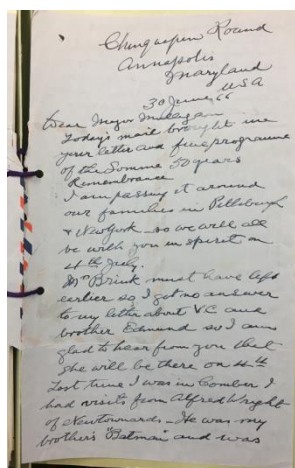 Chinquapin Round
Annapolis
Maryland
USA
30 June, 66
Dear Major Mulligan
Today's mail brought me
your letter and fine programme
of the Somme 50 years
Remembrance
I am passing it around
our families in Pittsburgh
& New York so we will all
be with you in spirit on
4th July.
Mrs Brink must have left
earlier so I got no answer
to my letter about VC and
brother Edmund so I am
glad to hear from you that
she will be there on 4th
Last time I was in Comber I
had visits from Alfred Wright
of Newtownards – He was my
brother's "Batman" and was